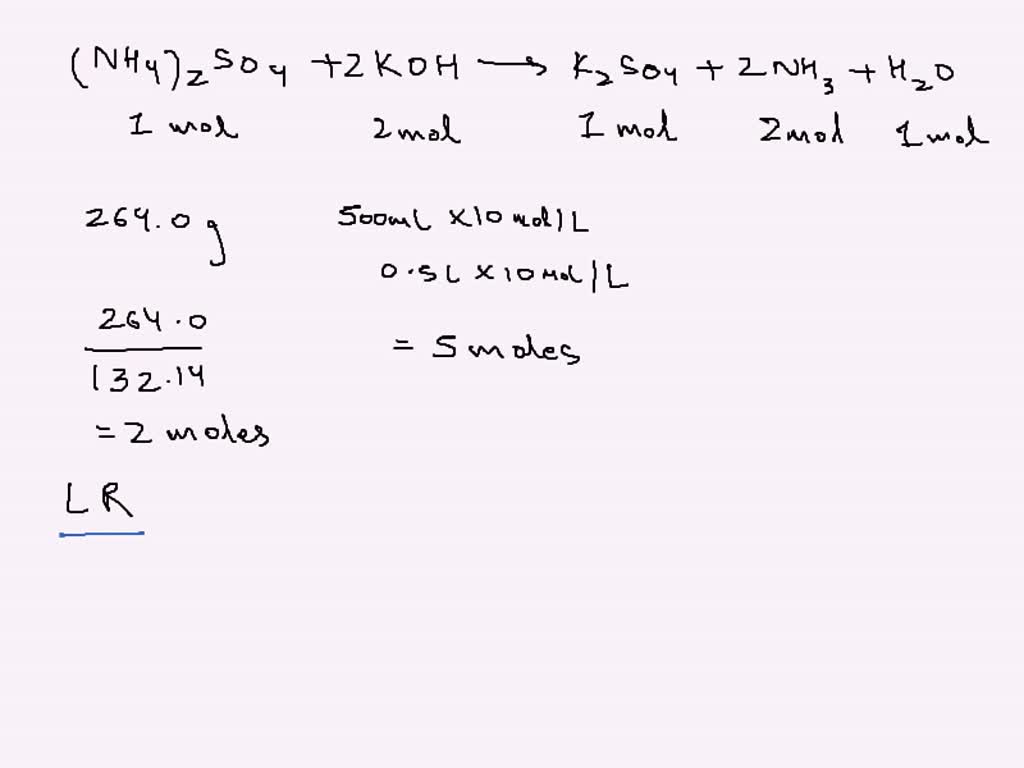 (NH4)2SO4 +2KOH → K2SO4 + 2NH3 + H2O
1 mol 2mol 1 mol 2mol 1mol
264.0g 500mL x10 mol/L
0.5L x10 mol/L
264.0
132.14
= 5 moles
= 2 moles
LR